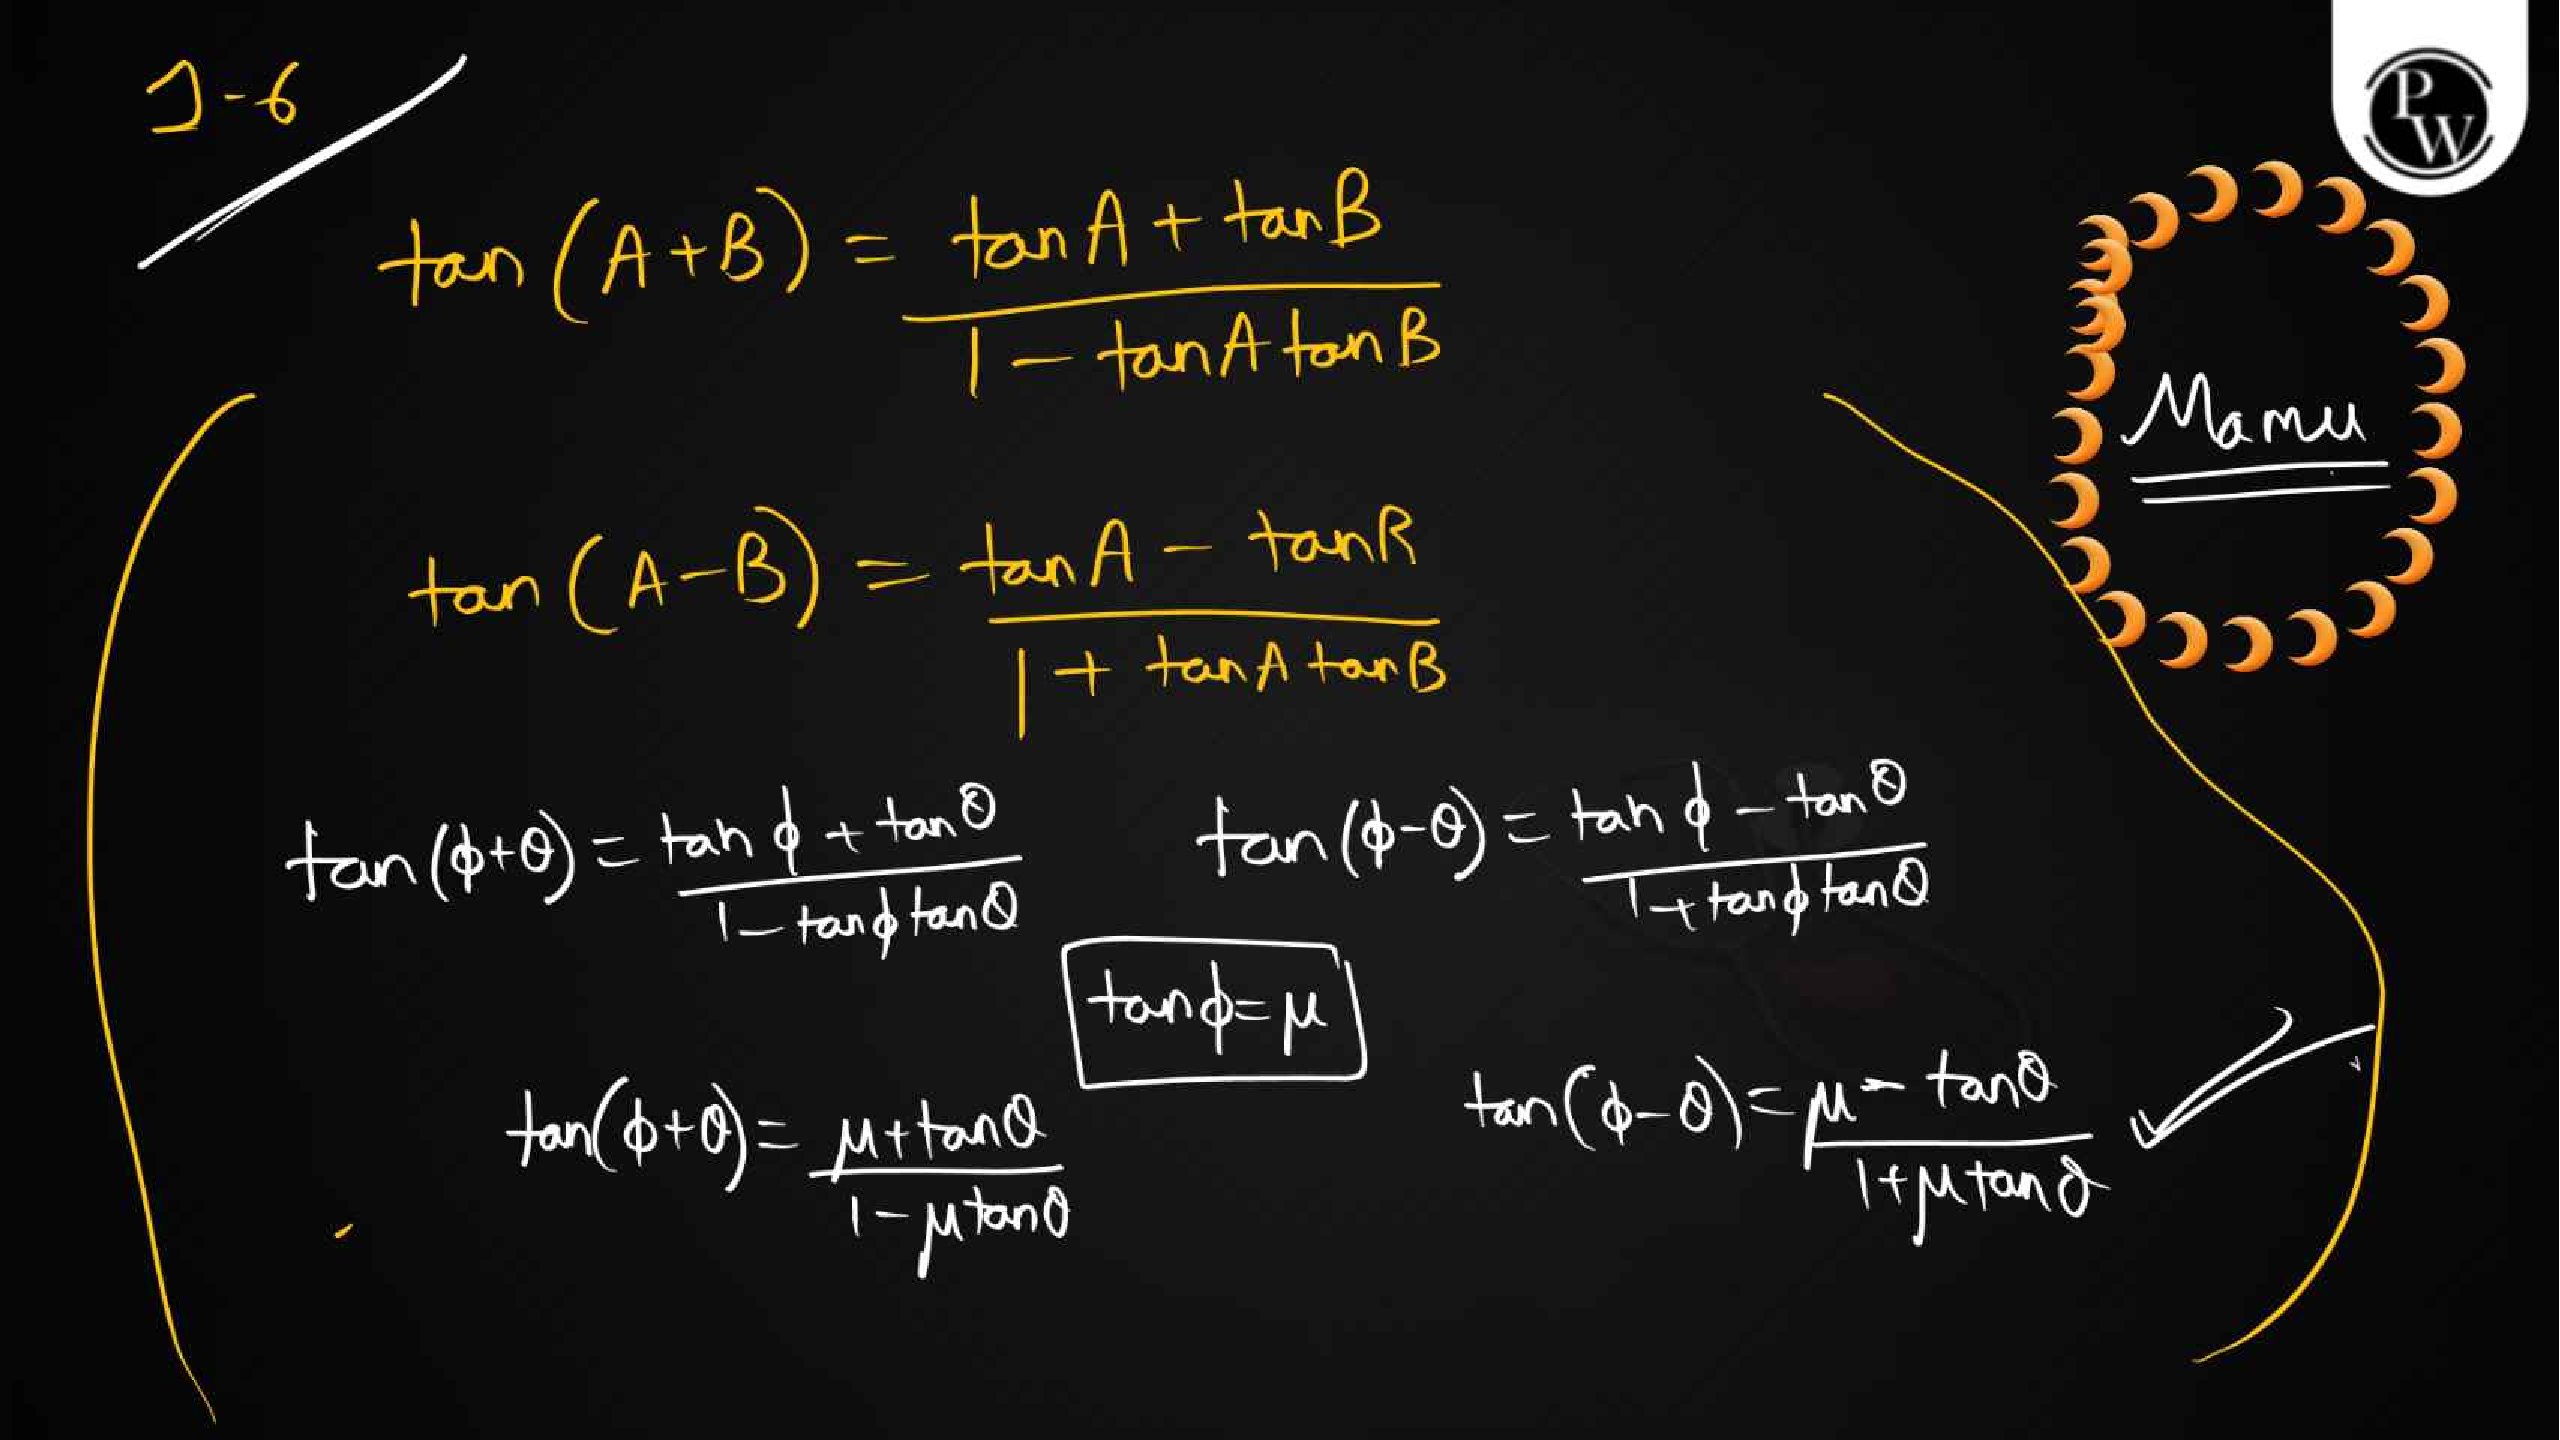 1-6
PW
tan (A+B) = tanA + tanB / 1 - tanA tanB
Mamu
tan (A-B) = tanA - tanB / 1 + tanA tanB
tan (ϕ+θ) = tan ϕ + tan θ / 1 - tanϕ tanθ
tan (ϕ-θ) = tan ϕ - tan θ / 1 + tanϕ tanθ
tanϕ = μ
tan(ϕ+θ) = μ + tanθ / 1 - μ tanθ
tan(ϕ-θ) = μ - tanθ / 1 + μ tanθ